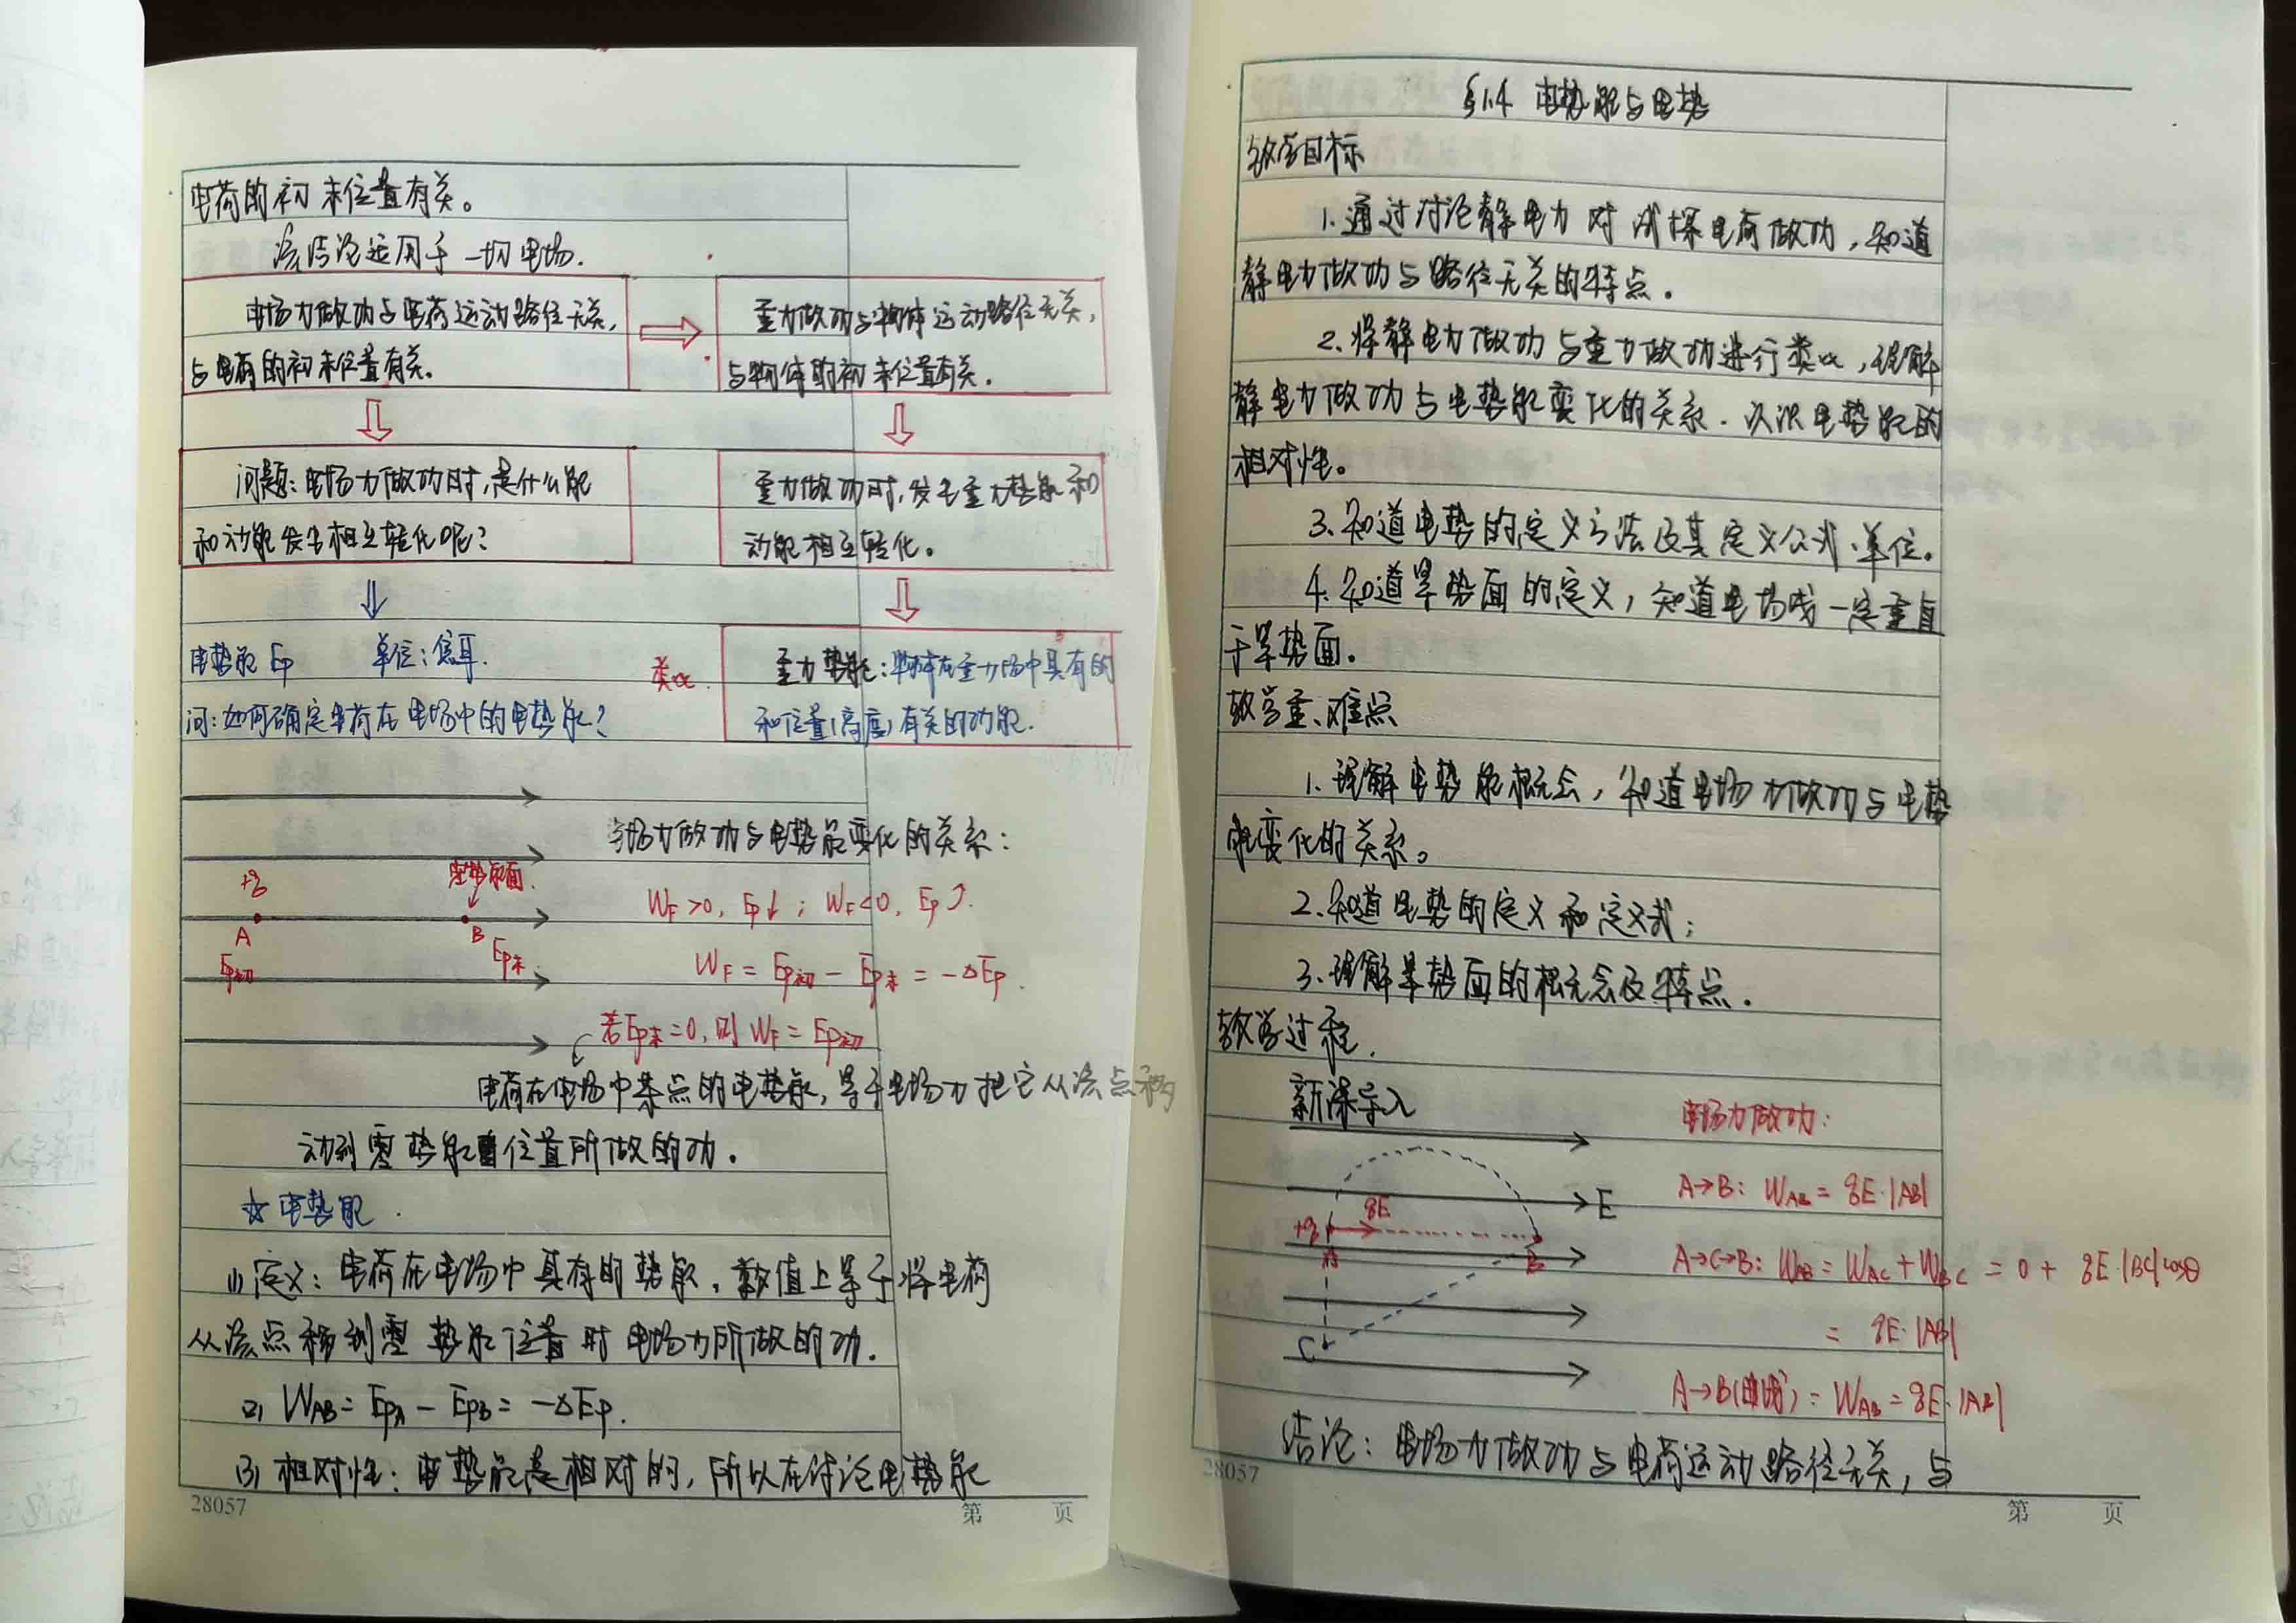 电荷的初末位置有关。
该结论适用于一切电场.
电场力做功与电荷运动路径无关,
与电荷的初末位置有关.
重力做功与物体运动路径无关,
与物体的初末位置有关.
问题:电场力做功时,是什么能
和动能发生相互转化呢?
重力做功时,发生重力势能和
动能相互转化。
电势能 Ep 单位:焦耳.
问:如何确定电荷在电场中的电势能?
类比.
重力势能:物体在重力场中具有的
和位置(高度)有关的功能.
电场力做功与电势能变化的关系:
+q
零势能面.
A
B
Ep初
Ep末.
WF>0, Ep↓; WF<0, Ep↑.
WF = Ep初 - Ep末 = -ΔEp.
若Ep末=0, 则 WF = Ep初
电荷在电场中某点的电势能,等于电场力把它从该点移
动到零势能位置所做的功.
☆电势能.
(1)定义:电荷在电场中具有的势能,数值上等于将电荷
从该点移到零势能位置时电场力所做的功.
(2) WAB = EpA - EpB = -ΔEp.
(3) 相对性:电势能是相对的,所以在讨论电势能
28057
第 页
§1.4 电势能与电势
教学目标
1.通过讨论静电力对试探电荷做功,知道
静电力做功与路径无关的特点.
2.将静电力做功与重力做功进行类比,理解
静电力做功与电势能变化的关系.认识电势能的
相对性。
3.知道电势的定义方法及其定义公式、单位.
4.知道等势面的定义,知道电场线一定垂直
于等势面.
教学重、难点
1.理解电势能概念,知道电场力做功与电势
能变化的关系。
2.知道电势的定义和定义式;
3.理解等势面的概念及特点.
教学过程.
新课导入
E
qE
+q
A
B
C
电场力做功:
A→B: WAB = qE·|AB|
A→C→B: WAB = WAC + WBC = 0 + qE·|BC|cosθ
= qE·|AB|
A→B(曲线): WAB = qE·|AB|
结论:电场力做功与电荷运动路径无关,与
28057
第 页